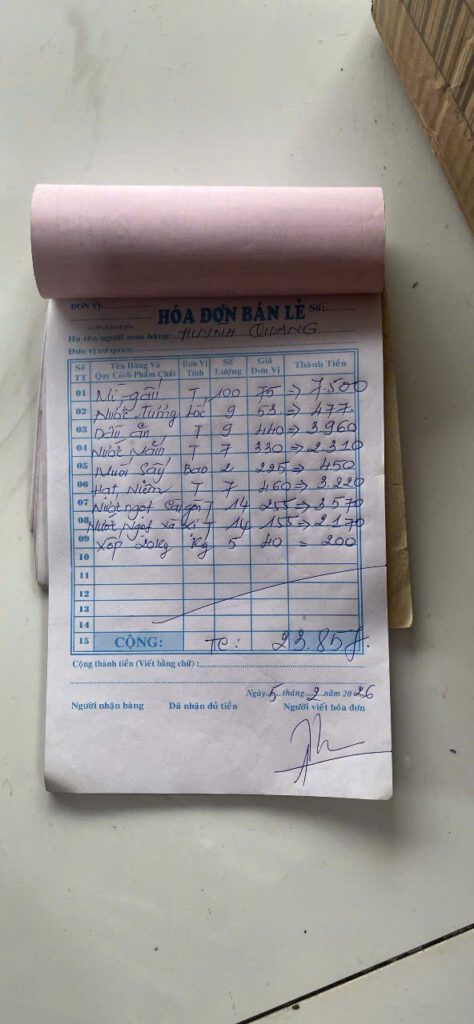 ĐƠN VỊ
HÓA ĐƠN BÁN LẺ Số:
Họ tên người mua hàng: HUỲNH QUANG
Đơn vị cơ quan:
Số TT Tên Hàng Và Quy Cách Phẩm Chất Đơn Vị Tính Số Lượng Giá Đơn Vị Thành Tiền
01 Mì gấu T 100 75 => 7.500
02 Nước Tương Lốc 9 53 => 477
03 Dầu ăn T 9 440 => 3.960
04 Nước Mắm T 7 330 => 2.310
05 Muối Sấy Bao 2 225 => 450
06 Hạt Niêm T 7 460 => 3.220
07 Nước ngọt Sài gòn T 14 255 => 3.570
08 Nước Ngọt Xá Xị T 14 155 => 2.170
09 Xốp 20kg Kg 5 40 = 200
10
11
12
13
14
15 CỘNG: TC: 23.857
Cộng thành tiền (Viết bằng chữ) :
Ngày 5 tháng 2 năm 2026
Người nhận hàng Đã nhận đủ tiền Người viết hóa đơn